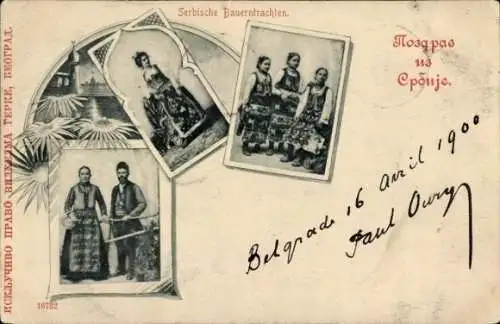 Serbische Bauerntrachten.
Поздрав
из
Србије.
ИСКЉУЧИВО ПРАВО ВИЛХЕЛМА ГЕРКЕ, БЕОГРАД.
Belgrade 16 avril 1900
Paul Oury
16782